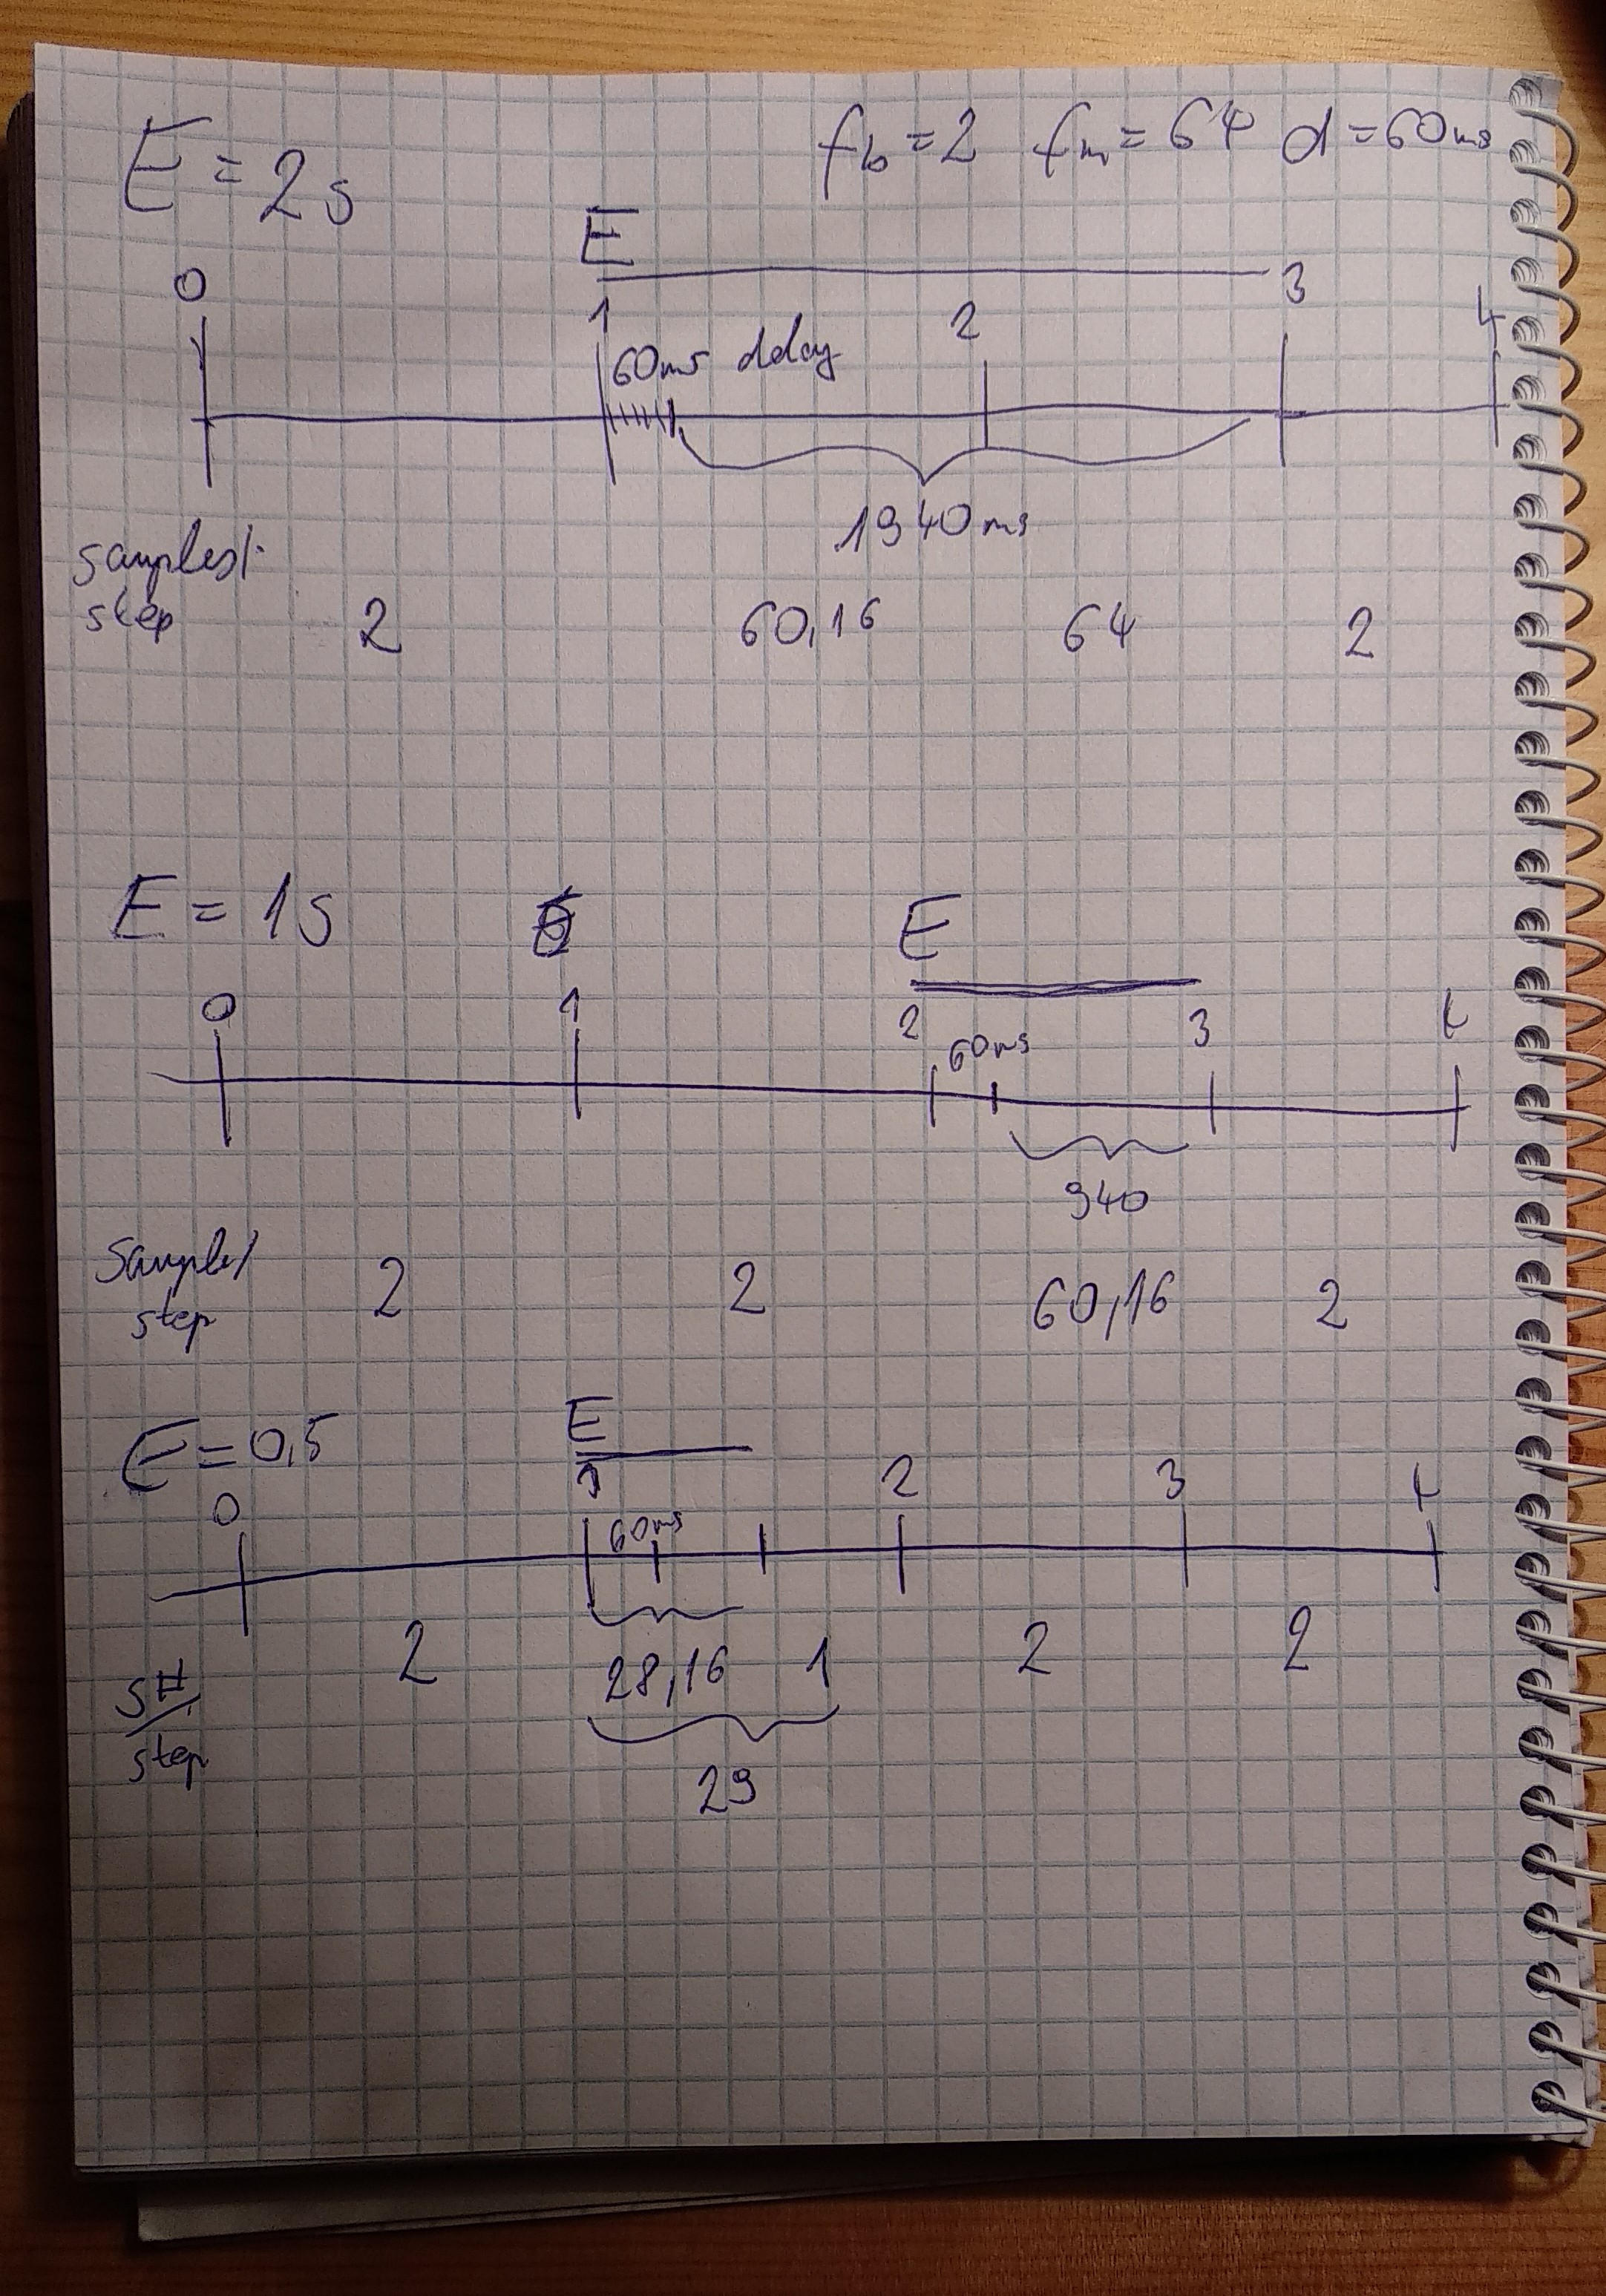 E = 2s
fb = 2 fm = 64 d = 60ms
E
0 1 2 3 4
60ms delay
1940ms
samples/
step 2 60,16 64 2
E = 1s
E
0 1 2 3 t
60ms
940
Samples/
step 2 2 60,16 2
E = 0,5
E
0 1 2 3 t
60ms
2 28,16 1 2 2
s#
step
29